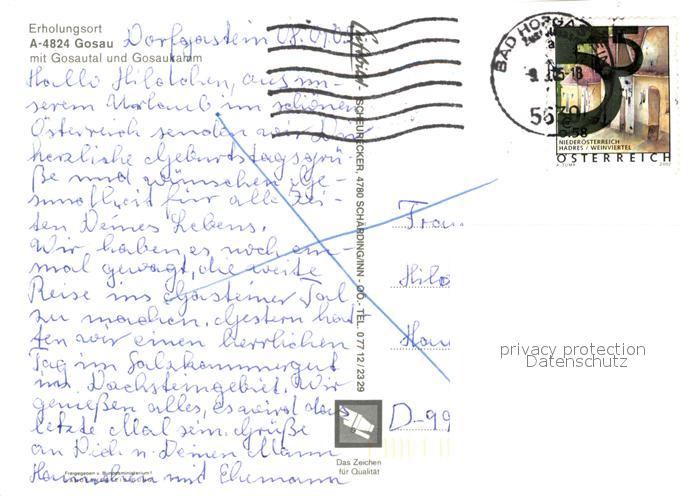 Erholungsort
A-4824 Gosau
mit Gosautal und Gosaukamm
Dorfgastein 08.07.05
Hallo Hildchen, aus un-
serem Urlaub im schönen
Österreich senden wir Dir
herzliche Geburtstagsgrü-
ße und wünschen Ge-
sundheit für alle Zei-
ten Deines Lebens.
Wir haben es noch ein-
mal gewagt, die weite
Reise ins Gasteiner Tal
zu machen. Gestern hat-
ten wir einen herrlichen
Tag im Salzkammergut
im Dachsteingebiet. Wir
genießen alles, es wird das
letzte Mal sein. Grüße
an Dich u. Deinen Mann
mit Ehemann
SCHEURECKER, 4780 SCHÄRDING/INN - OÖ. - TEL. 0 77 12 / 23 29
Das Zeichen
für Qualität
BAD HOFGASTEIN
5630
55
0.58
NIEDERÖSTERREICH
HADRES / WEINVIERTEL
ÖSTERREICH
2002
Frau
Hild
D-99
privacy protection
Datenschutz